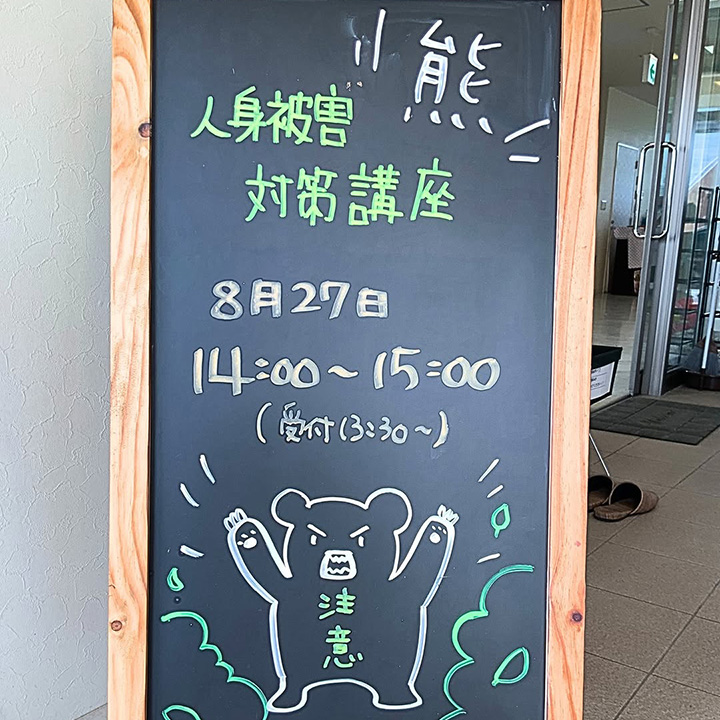 熊
人身被害
対策講座
8月27日
14:00~15:00
(受付13:30~)
注意